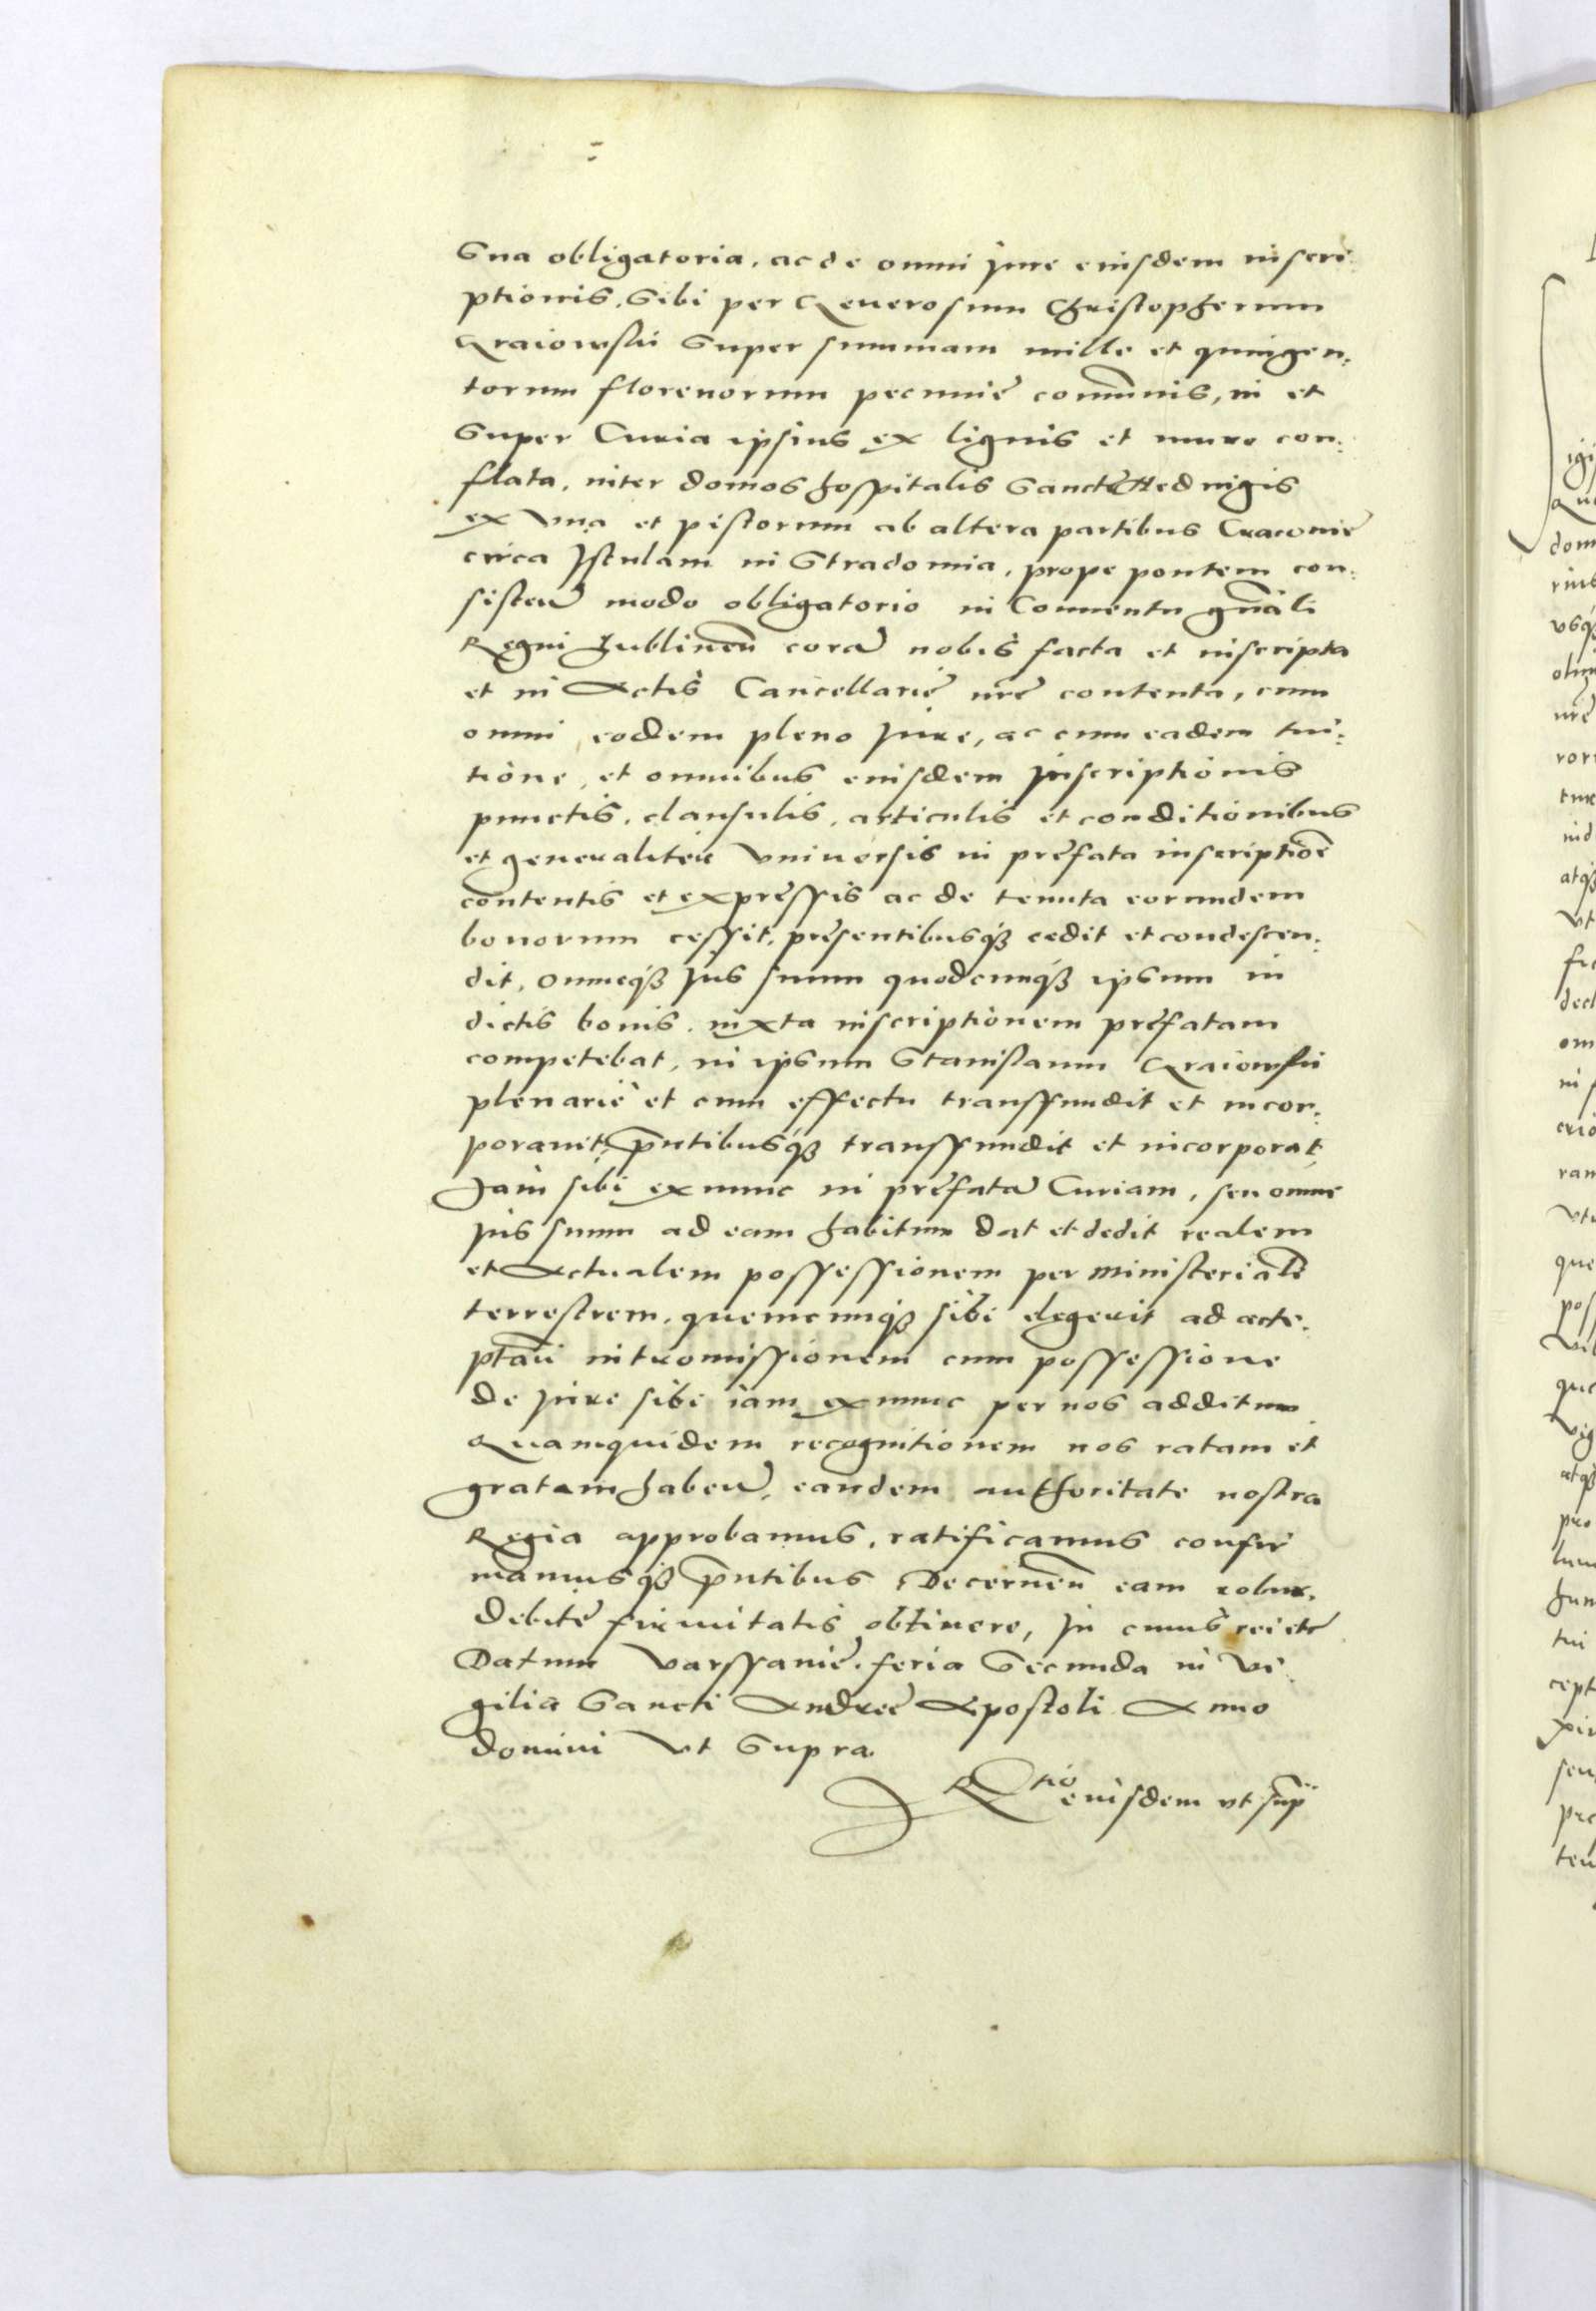 Sua obligatoria, ac de omni Jure eiusdem inscri
ptionis, Sibi per Generosum Christopherum
Graiowski Super summam mille et quingen:
torum florenorum pecunie comũnis, in et
Super Curia ipsius ex lignis et muro con:
flata, inter domos hospitalis Sanctę Hedvigis
ex una et pistorum ab altera partibus Cracovie
circa Istulam in Stradomia, prope pontem con:
sisteñ modo obligatorio in Conventu gñali
Regni Lublineñ corã nobis facta et inscripta
et in Actis Cancellarie nrẽ contenta, cum
omni eodem pleno Jure, ac cum eadem tui:
tione, et omnibus eiusdem Inscriptionis
punctis, clausulis, articulis et conditionibus
et generaliter universis in prefata inscriptiõe
contentis et expressis ac de tenuta eorundem
bonorum cessit, presentibusqꝫ cedit et condescen:
dit, omneqꝫ Jus suum quodcunqꝫ ipsum in
dictis bonis, iuxta inscriptionem prefatam
competebat, in ipsum Stanislaum Graiowski
plenarie et cum effectu transfundit et incor:
poravit, p̃ntibusqꝫ transfundit et incorporat,
Jam sibi ex nunc in prefatã Curiam, seu omne
Jus suum ad eam habitum dat et dedit realem
et Actualem possessionem per ministerialẽ
terrestrem, quemcunqꝫ sibi elegerit ad acce:
ptañ intromissionem cum possessione
de Jure sibi iam ex nunc per nos additum
Quamquidem recognitionem nos ratam et
gratam habeñ, eandem authoritate nostra
Regia approbamus, ratificamus confir
mamusqꝫ p̃ntibus Decerneñ eam robur
debite firmitatis obtinere, In cuius rei etc
Datum Varssavie, feria Secunda in Vi
gilia Sancti Andree Apostoli Anno
domini ut Supra
Rtio eiusdem ut supr̃